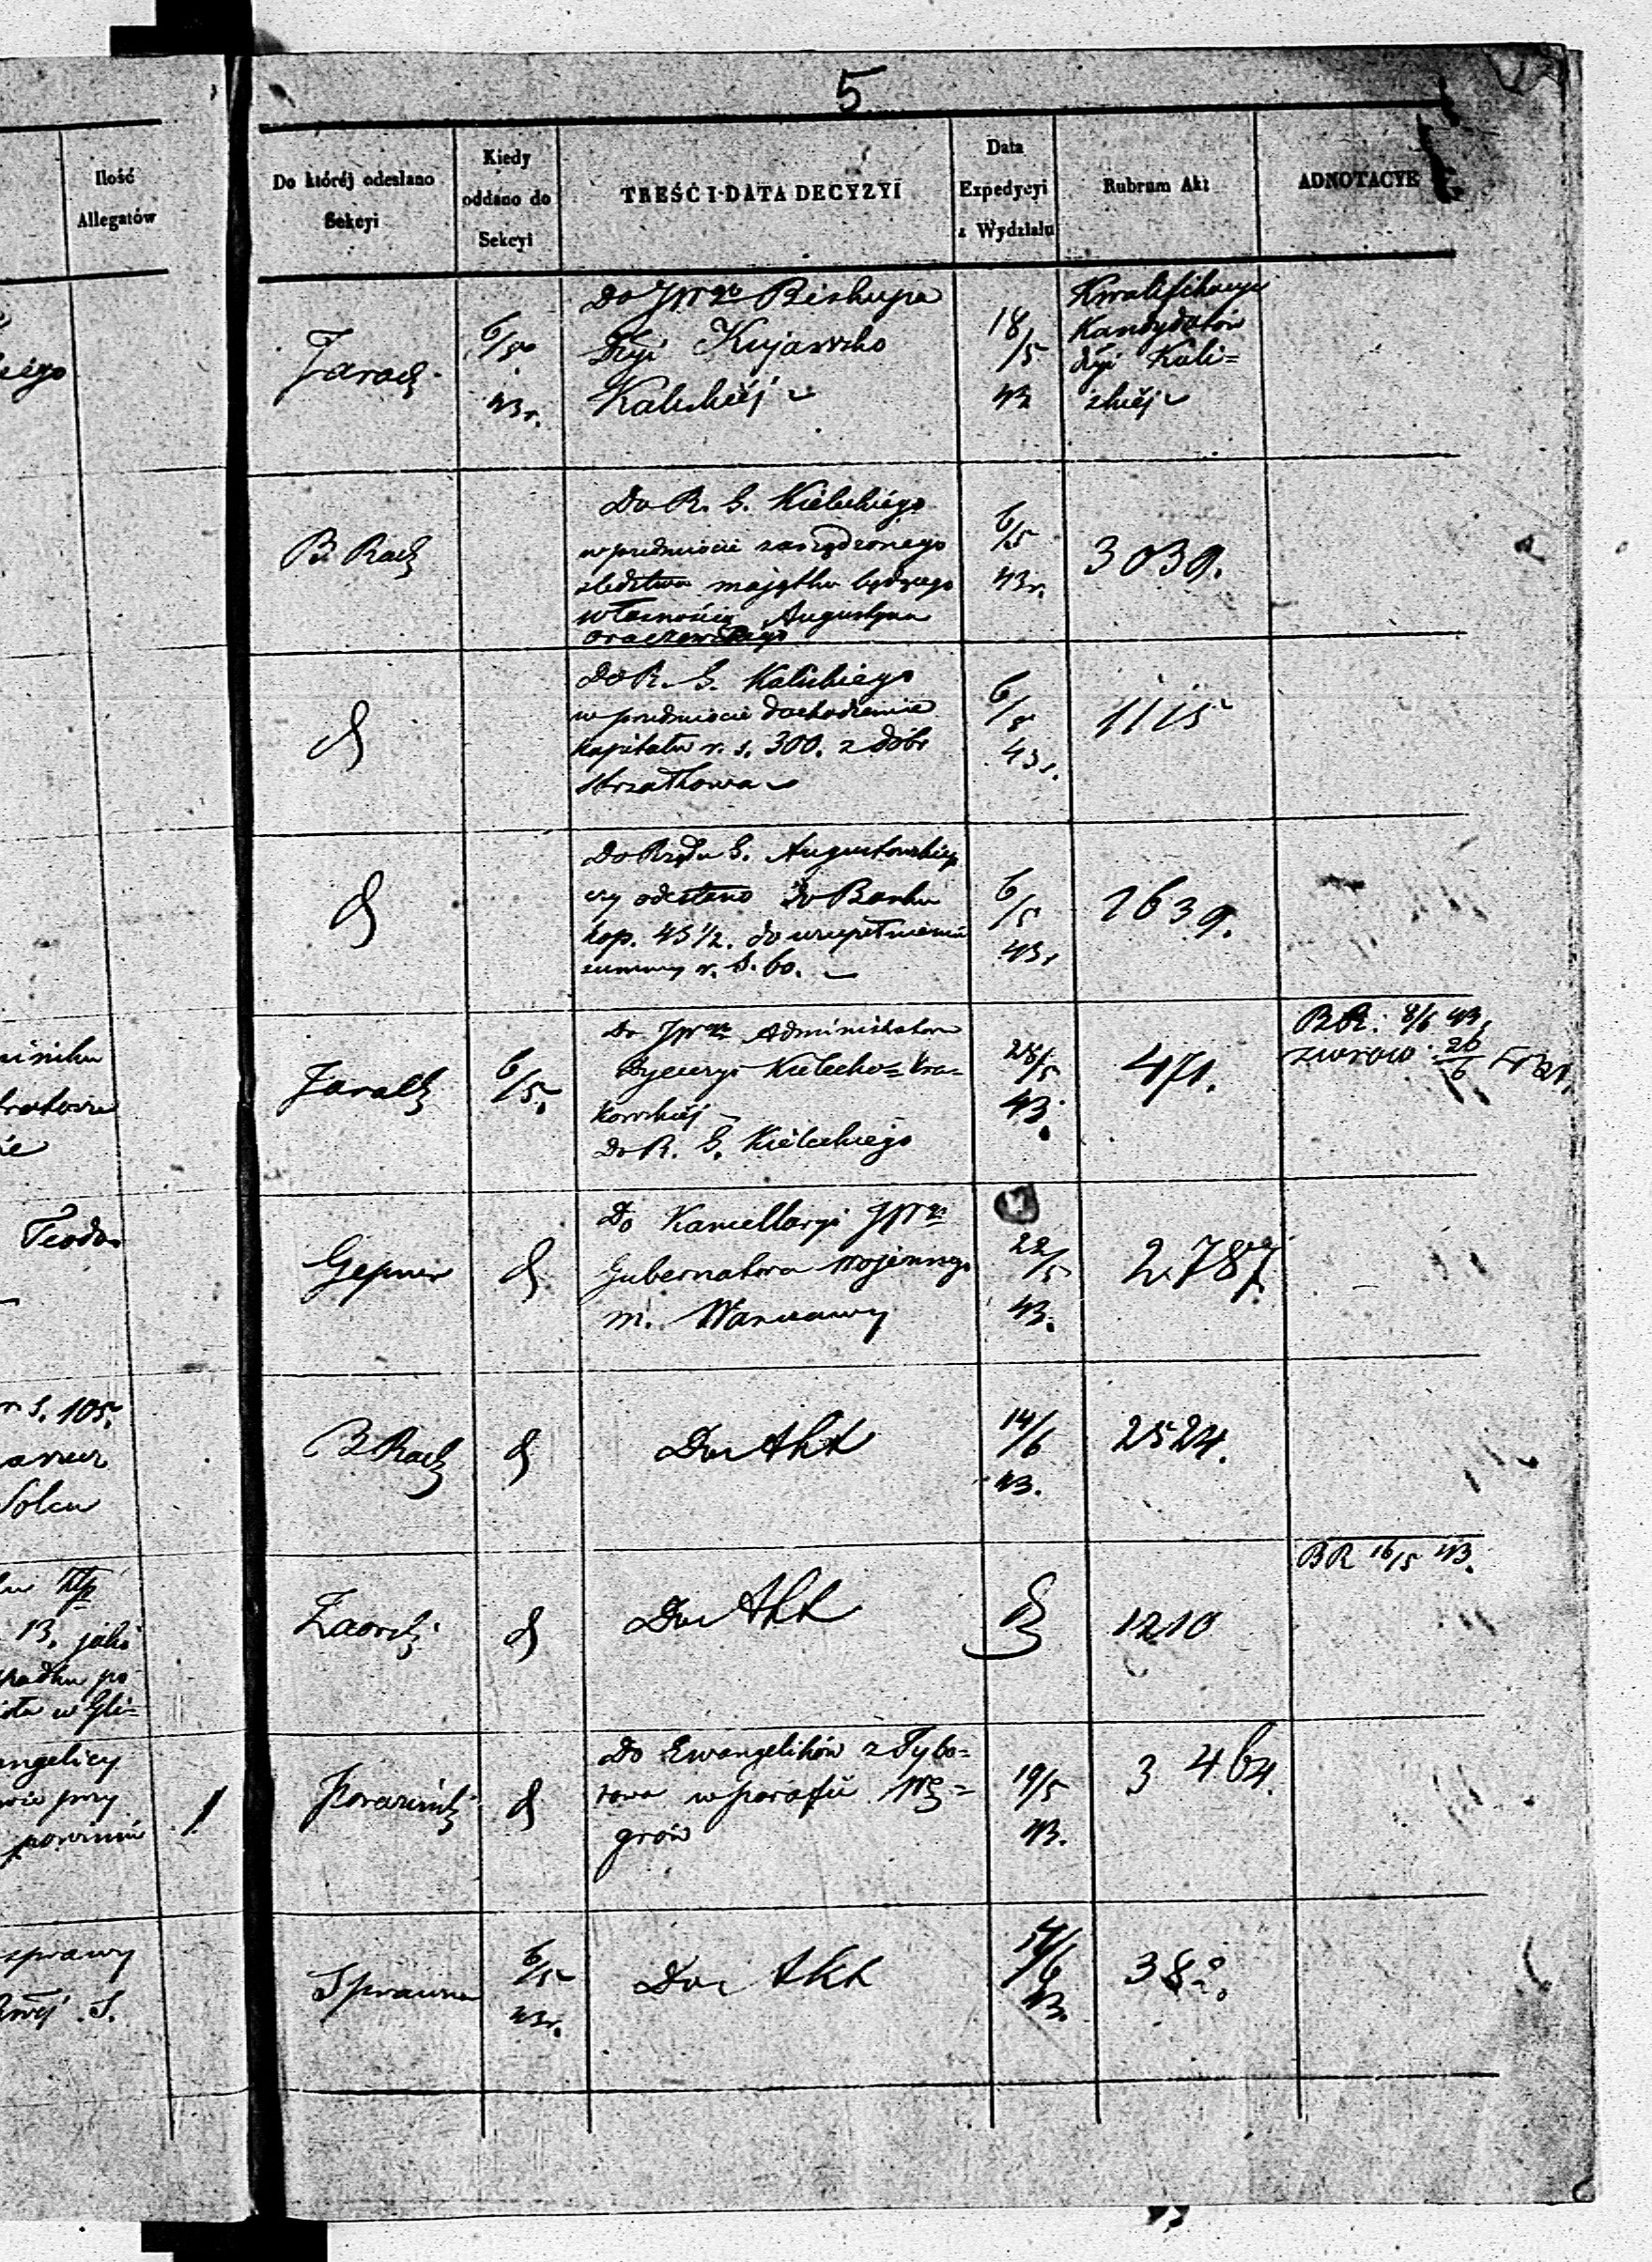 5
Ilość
Allegatów
Do któréj odesłano
Sekcyi
Kiedy
oddano do
Sekcyi
TREŚĆ I DATA DECYZYI
Data
Expedycyi
z Wydziału
Rubrum Akt
ADNOTACYE
6/5
43r.
Do JW Biskupa
Dyi Kujawsko
Kaliskiéj
18/5
43
Kwalifikacye
Kandydatów
dyi Kali=
skiéj
B. Rach
Do R. G. Kieleckiego
w przedmiocie zarządzonego
śledztwa majątku będącego
własnością Augustyna
Oraczewskiego
6/5
43r.
3039.
Do R. G. Kaliskiego
w przedmiocie dochodzenia
kapitału r. s. 300. z dóbr
Strzałkowa
6/5
43r.
1115
Do Rządu G. Augustowskiego
czy odesłano do Banku
kop. 45 1/2. do uzupełnienia
summy r. s. 60.
6/5
43r
2639.
6/5.
Do JW Administratora
Dyecezyi Kielecko=Kra=
kowskiéj
Do R. G. Kieleckiego
28/5
43.
471.
BR: 8/6 43.
zwroco. 26/6
Teodo
Gepner
Do Kancellaryi JW
Gubernatora Wojennego
m. Warszawy
22/5
43.
2787
r. s. 105.
Solcu
B Rach
Do Akt
14/6
43.
2524.
13. jako
spadku po
w Gli=
Do Akt
1210
BR 16/5 43.
angelicy
przy
powinni
1
Do Ewangelików z Tybo=
rowa w parafii Wę=
grów
19/5
43.
3464
sprawy
S.
Sprawna
6/5
43r.
Do Akt
14/6
43.
382.